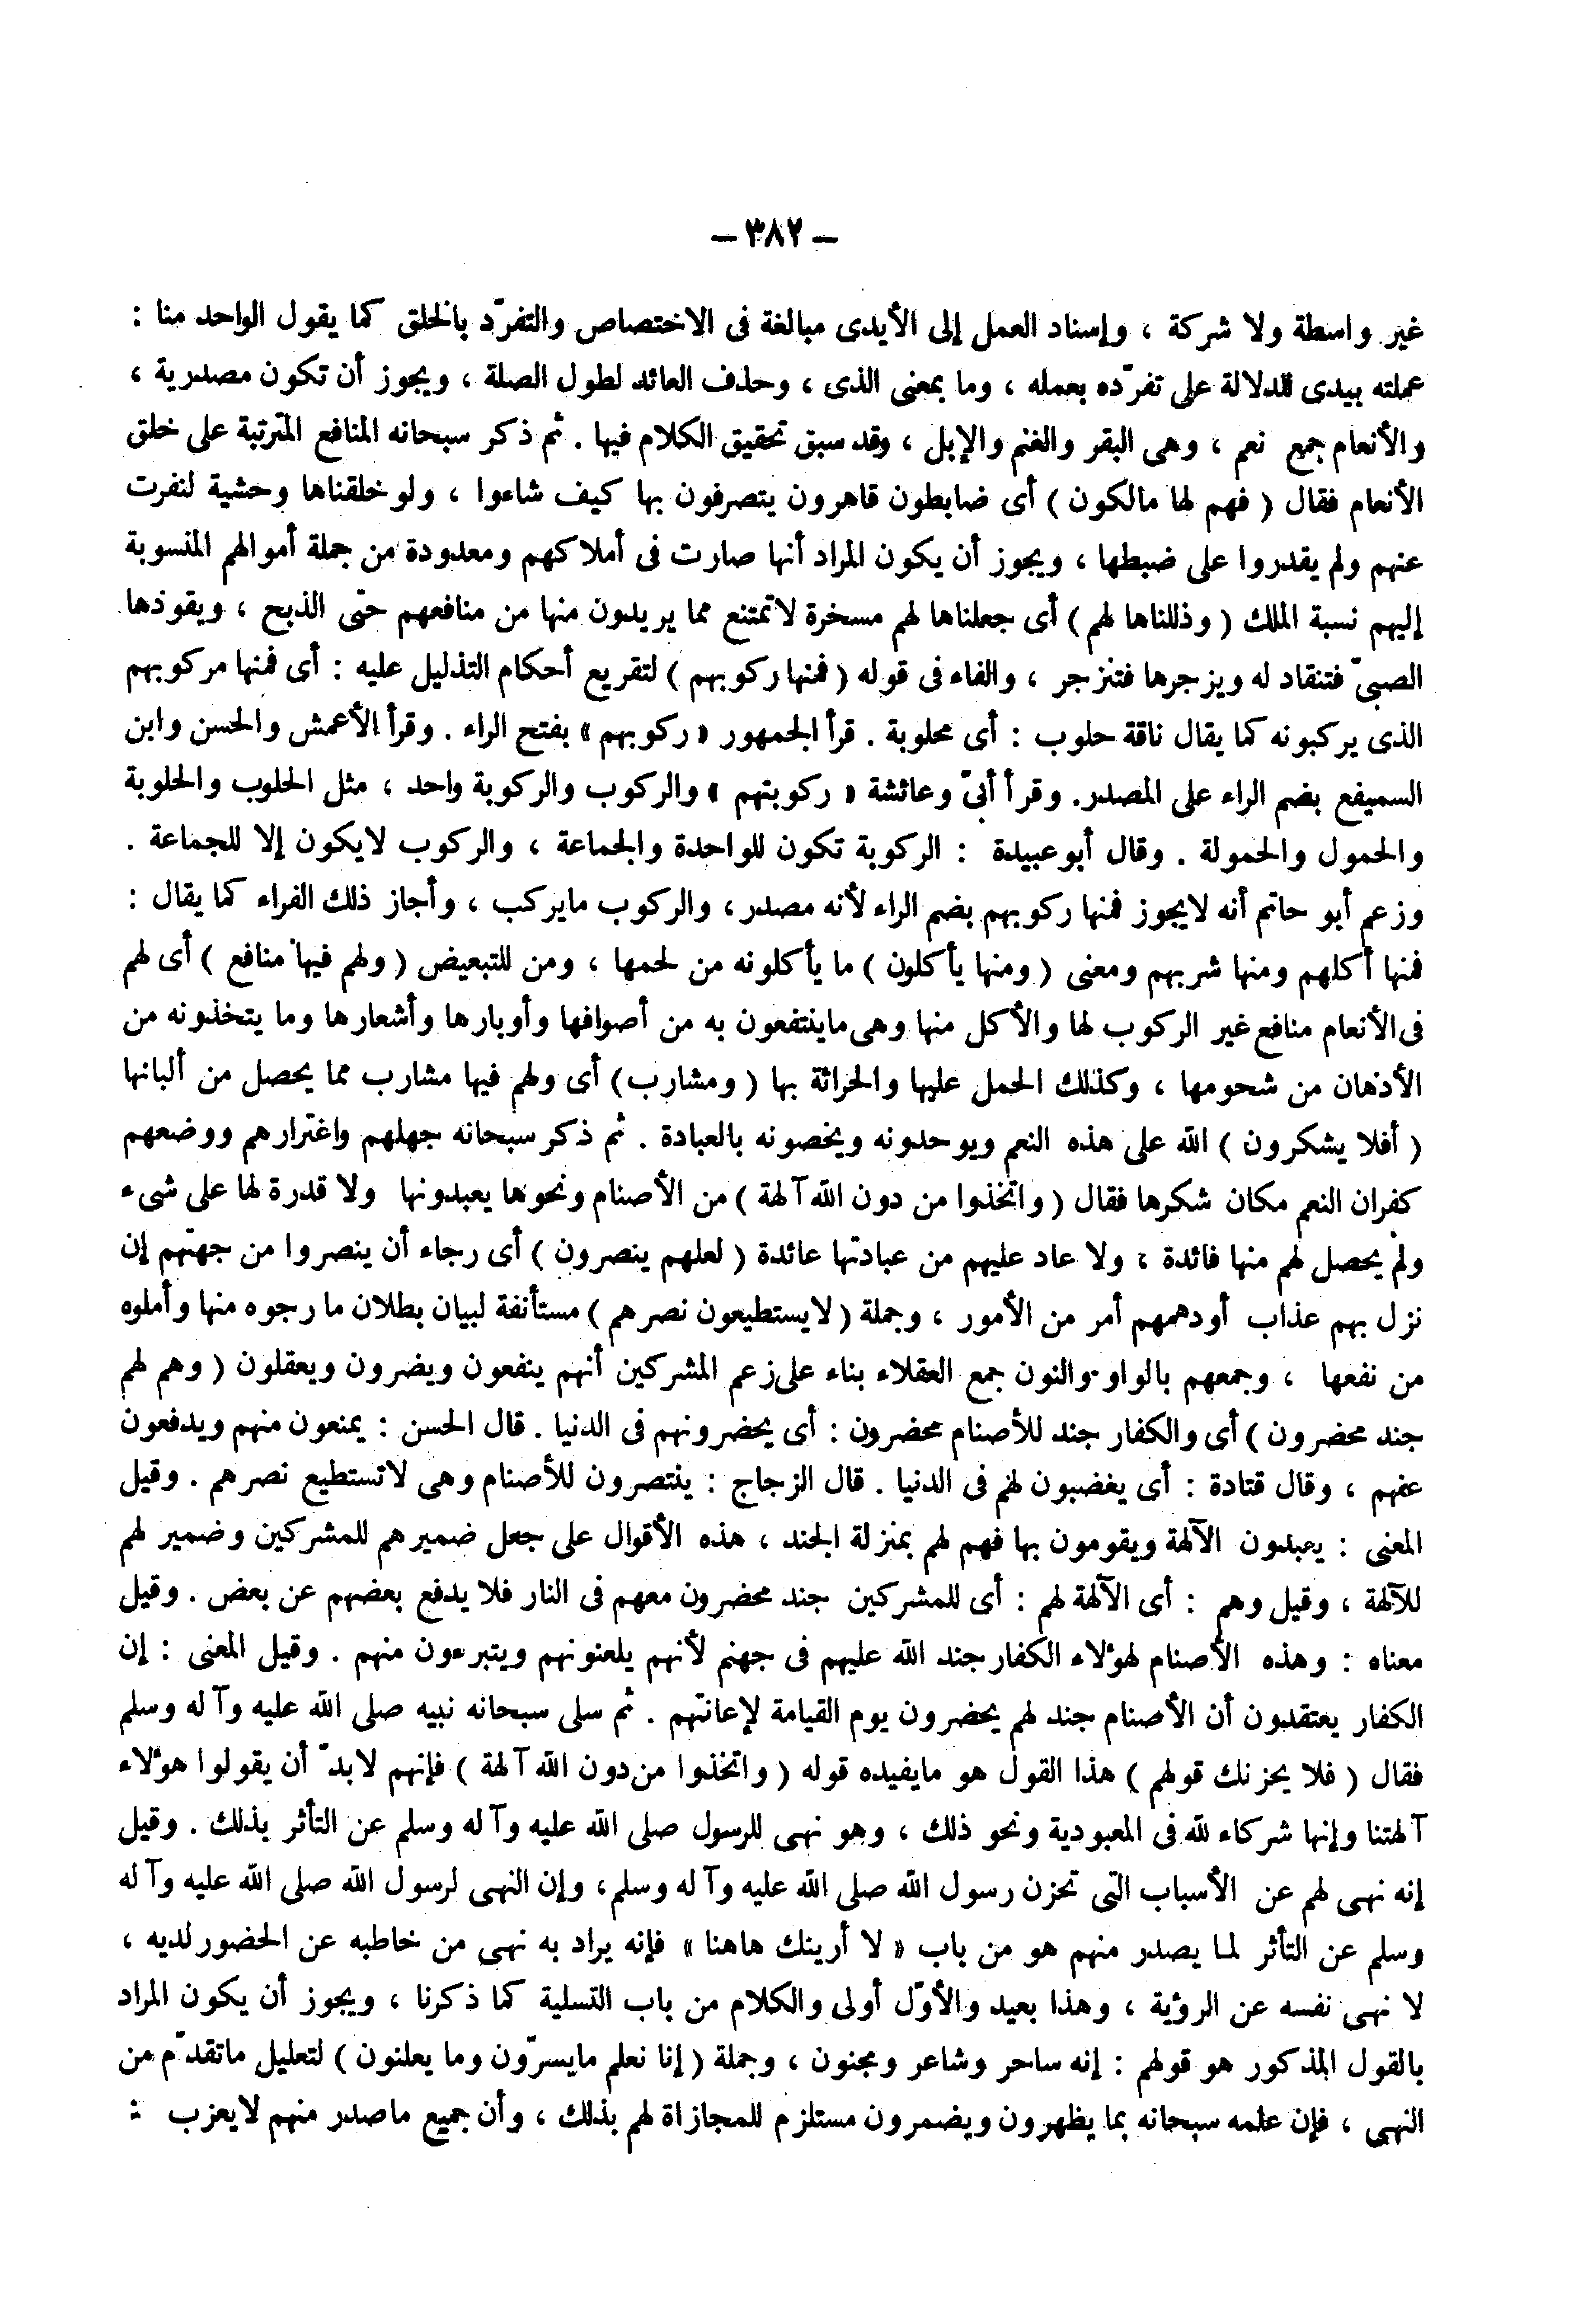 – ٣٨٢ –
غير واسطة ولا شركة ، وإسناد العمل إلى الأيدى مبالغة فى الاختصاص والتفرّد بالخلق كما يقول الواحد منا :
عملته بيدى للدلالة على تفرّده بعمله ، وما بمعنى الذى ، وحذف العائد لطول الصلة ، ويجوز أن تكون مصدرية ،
والأنعام جمع نعم ، وهى البقر والغنم والإبل ، وقد سبق تحقيق الكلام فيها . ثم ذكر سبحانه المنافع المترتبة على خلق
الأنعام فقال ( فهم لها مالكون ) أى ضابطون قاهرون يتصرفون بها كيف شاءوا ، ولو خلقناها وحشية لنفرت
عنهم ولم يقدروا على ضبطها ، ويجوز أن يكون المراد أنها صارت فى أملاكهم ومعدودة من جملة أموالهم المنسوبة
إليهم نسبة الملك ( وذللناها لهم ) أى جعلناها لهم مسخرة لاتمتنع مما يريدون منها من منافعهم حتى الذبح ، ويقودها
الصبىّ فتنقاد له ويزجرها فتنزجر ، والفاء فى قوله ( فمنها ركوبهم ) لتقريع أحكام التذليل عليه : أى فمنها مركوبهم
الذى يركبونه كما يقال ناقة حلوب : أى محلوبة . قرأ الجمهور « ركوبهم » بفتح الراء . وقرأ الأعمش والحسن وابن
السميفع بضم الراء على المصدر. وقرأ أبىّ وعائشة « ركوبتهم » والركوب والركوبة واحد ، مثل الحلوب والحلوبة
والحمول والحمولة . وقال أبو عبيدة : الركوبة تكون للواحدة والجماعة ، والركوب لايكون إلا للجماعة .
وزعم أبو حاتم أنه لايجوز فمنها ركوبهم بضم الراء لأنه مصدر ، والركوب مايركب ، وأجاز ذلك الفراء كما يقال :
فمنها أكلهم ومنها شربهم ومعنى ( ومنها يأكلون ) ما يأكلونه من لحمها ، ومن للتبعيض ( ولهم فيها منافع ) أى لهم
فى الأنعام منافع غير الركوب لها والأكل منها وهى ماينتفعون به من أصوافها وأوبارها وأشعارها وما يتخذونه من
الأدهان من شحومها ، وكذلك الحمل عليها والحراثة بها ( ومشارب ) أى ولهم فيها مشارب مما يحصل من ألبانها
( أفلا يشكرون ) الله على هذه النعم ويوحدونه ويخصونه بالعبادة . ثم ذكر سبحانه جهلهم واغترارهم ووضعهم
كفران النعم مكان شكرها فقال ( واتخذوا من دون الله آلهة ) من الأصنام ونحوها يعبدونها ولا قدرة لها على شىء
ولم يحصل لهم منها فائدة ، ولا عاد عليهم من عبادتها عائدة ( لعلهم ينصرون ) أى رجاء أن ينصروا من جهتهم إن
نزل بهم عذاب أو دهمهم أمر من الأمور ، وجملة ( لايستطيعون نصرهم ) مستأنفة لبيان بطلان ما رجوه منها وأملوه
من نفعها ، وجمعهم بالواو والنون جمع العقلاء بناء على زعم المشركين أنهم ينفعون ويضرون ويعقلون ( وهم لهم
جند محضرون ) أى والكفار جند للأصنام محضرون : أى يحضرونهم فى الدنيا . قال الحسن : يمنعون منهم ويدفعون
عنهم ، وقال قتادة : أى يغضبون لهم فى الدنيا . قال الزجاج : ينتصرون للأصنام وهى لاتستطيع نصرهم . وقيل
المعنى : يعبدون الآلهة ويقومون بها فهم لهم بمنزلة الجند ، هذه الأقوال على جعل ضميرهم للمشركين وضمير لهم
للآلهة ، وقيل وهم : أى الآلهة لهم : أى للمشركين جند محضرون معهم فى النار فلا يدفع بعضهم عن بعض . وقيل
معناه : وهذه الأصنام لهؤلاء الكفار جند الله عليهم فى جهنم لأنهم يلعنونهم ويتبرءون منهم . وقيل المعنى : إن
الكفار يعتقدون أن الأصنام جند لهم يحضرون يوم القيامة لإعانتهم . ثم سلى سبحانه نبيه صلى الله عليه وآله وسلم
فقال ( فلا يحزنك قولهم ) هذا القول هو مايفيده قوله ( واتخذوا من دون الله آلهة ) فإنهم لابدّ أن يقولوا هؤلاء
آلهتنا وإنها شركاء لله فى المعبودية ونحو ذلك ، وهو نهى للرسول صلى الله عليه وآله وسلم عن التأثر بذلك . وقيل
إنه نهى لهم عن الأسباب التى تحزن رسول الله صلى الله عليه وآله وسلم، وإن النهى لرسول الله صلى الله عليه وآله
وسلم عن التأثر لما يصدر منهم هو من باب « لا أرينك هاهنا » فإنه يراد به نهى من خاطبه عن الحضور لديه ،
لا نهى نفسه عن الرؤية ، وهذا بعيد والأوّل أولى والكلام من باب التسلية كما ذكرنا ، ويجوز أن يكون المراد
بالقول المذكور هو قولهم : إنه ساحر وشاعر ومجنون ، وجملة ( إنا نعلم مايسرّون وما يعلنون ) لتعليل ماتقدّم من
النهى ، فإن علمه سبحانه بما يظهرون ويضمرون مستلزم للمجازاة لهم بذلك ، وأن جميع ماصدر منهم لايعزب :